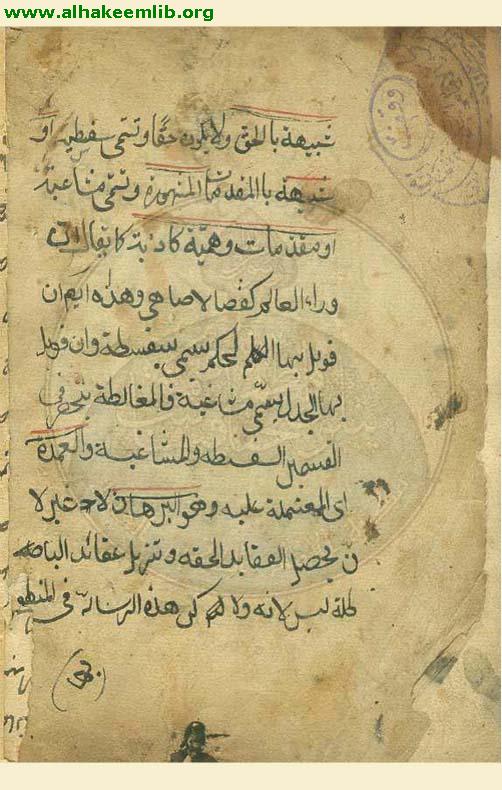 www.alhakeemlib.org
شبيهة بالحق ولا يكون حقا وتسمى سفسطة او
شبيهة بالمقدمات المشهورة وتسمى مشاغبة
او مقدمات وهمية كاذبة كما يقال ان
وراء العالم فضا لا يتناهى وهذه ايم ان
قوبل بها الحكيم سمي سفسطة وان قوبل
بها الجدلي يسمى مشاغبة فالمغالطة ينحصر في
القسمين السفسطه والمشاغبة والعمدة
اى المعتملة عليه وهو البرهان لا غير لا
ن تحصل العقايد الحقه وتزيل عقائد الباطه
طلة ليس لانه ولا هذه الرسالة فى المنطق